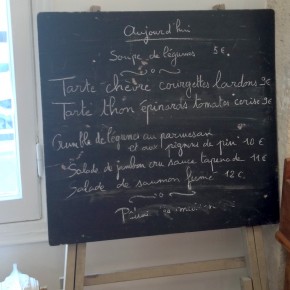 Aujourd'hui
Soupe de légumes 5€
Tarte chèvre courgettes lardons 9€
Tarte thon épinards tomates cerise 9€
Crumble de légumes au parmesan
et aux pignons de pin 10€
Salade de jambon cru sauce tapenade 11€
Salade de saumon fumé 12€.